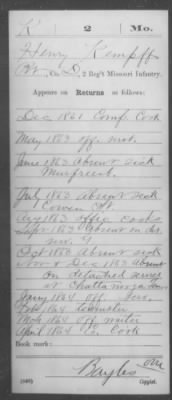 K 2 Mo.
Henry Kempff
Pvt, Co. D, 2 Reg't Missouri Infantry.
Appears on Returns as follows:
Dec 1861 Comf Cook
May 1863 off. mot.
June 1863 Absent sick
Murfreesb.
July 1863 Absent sick
Cowan
Aug 1863 offic cooks
Sept 1863 Absent on ds.
Oct 1863 Absent sick
Nov & Dec 1863 Absent
on detached service
at Chattanooga Tenn
Jany 1864 off. Serv.
Feb 1864 teamster
Mch 1864 off waiter
April 1864 Co. Cook
Book mark:
Bayles
(546) Copyist.